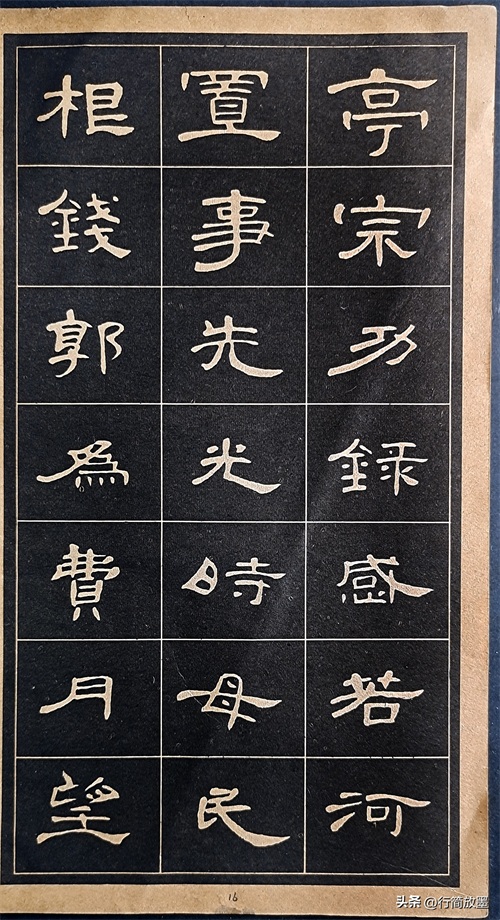 亭宗功録感若河
置事先光時母民
根錢郭為費月望
16
头条@行简放墨